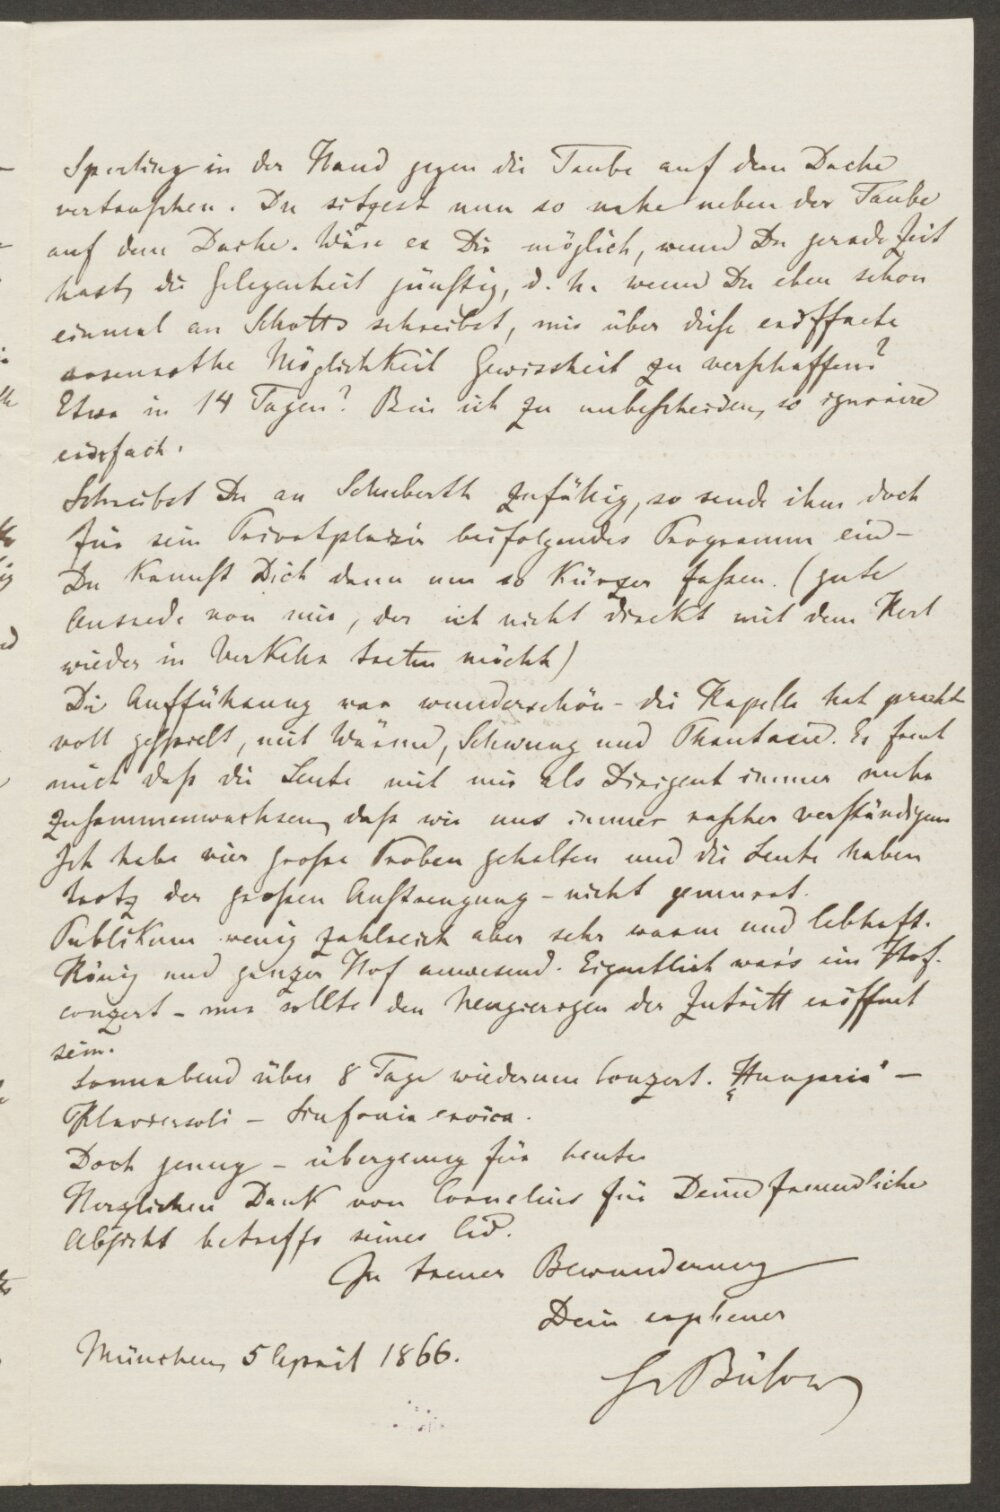 Sperling in der Hand gegen die Taube auf dem Dache
vertauschen. Du sitzest nun so nahe neben der Taube
auf dem Dache. Wäre es Dir möglich, wenn Du gerade Zeit
hast, die Gelegenheit günstig, d. h. wenn Du eben schon
einmal an Schotts schreibst, mir über diese eröffnete
rosenrothe Möglichkeit Gewissheit zu verschaffen?
Etwa in 14 Tagen? Bin ich zu unbescheiden, so ignorire
einfach.
Schreibst Du an Schuberth zufällig, so sende ihm doch
für sein Privatpläsir beifolgendes Programm ein –
Du kannst Dich dann um so kürzer fassen. (gute
Ausrede von mir, der ich nicht direkt mit dem Kerl
wieder in Verkehr treten möchte)
Die Aufführung war wunderschön – die Kapelle hat pracht
voll gespielt, mit Wärme, Schwung und Phantasie. Es freut
mich daß die Leute mit mir als Dirigent immer mehr
zusammenwachsen, daß wir uns immer rascher verständigen
Ich habe vier große Proben gehalten und die Leute haben
trotz der großen Anstrengung – nicht gemurrt.
Publikum wenig zahlreich aber sehr warm und lebhaft.
König und ganzer Hof anwesend. Eigentlich war's ein Hof-
conzert – nur sollte den Neugierigen der Zutritt eröffnet
sein.
Sonnabend über 8 Tage wiederum Conzert. „Hungaria" –
Klaviersoli – Sinfonia eroica.
Doch genug – übergenug für heute
Herzlichen Dank von Cornelius für Deine freundliche
Absicht betreffs seines Cid.
In treuer Bewunderung
Dein ergebener
München, 5 April 1866.
HvBülow